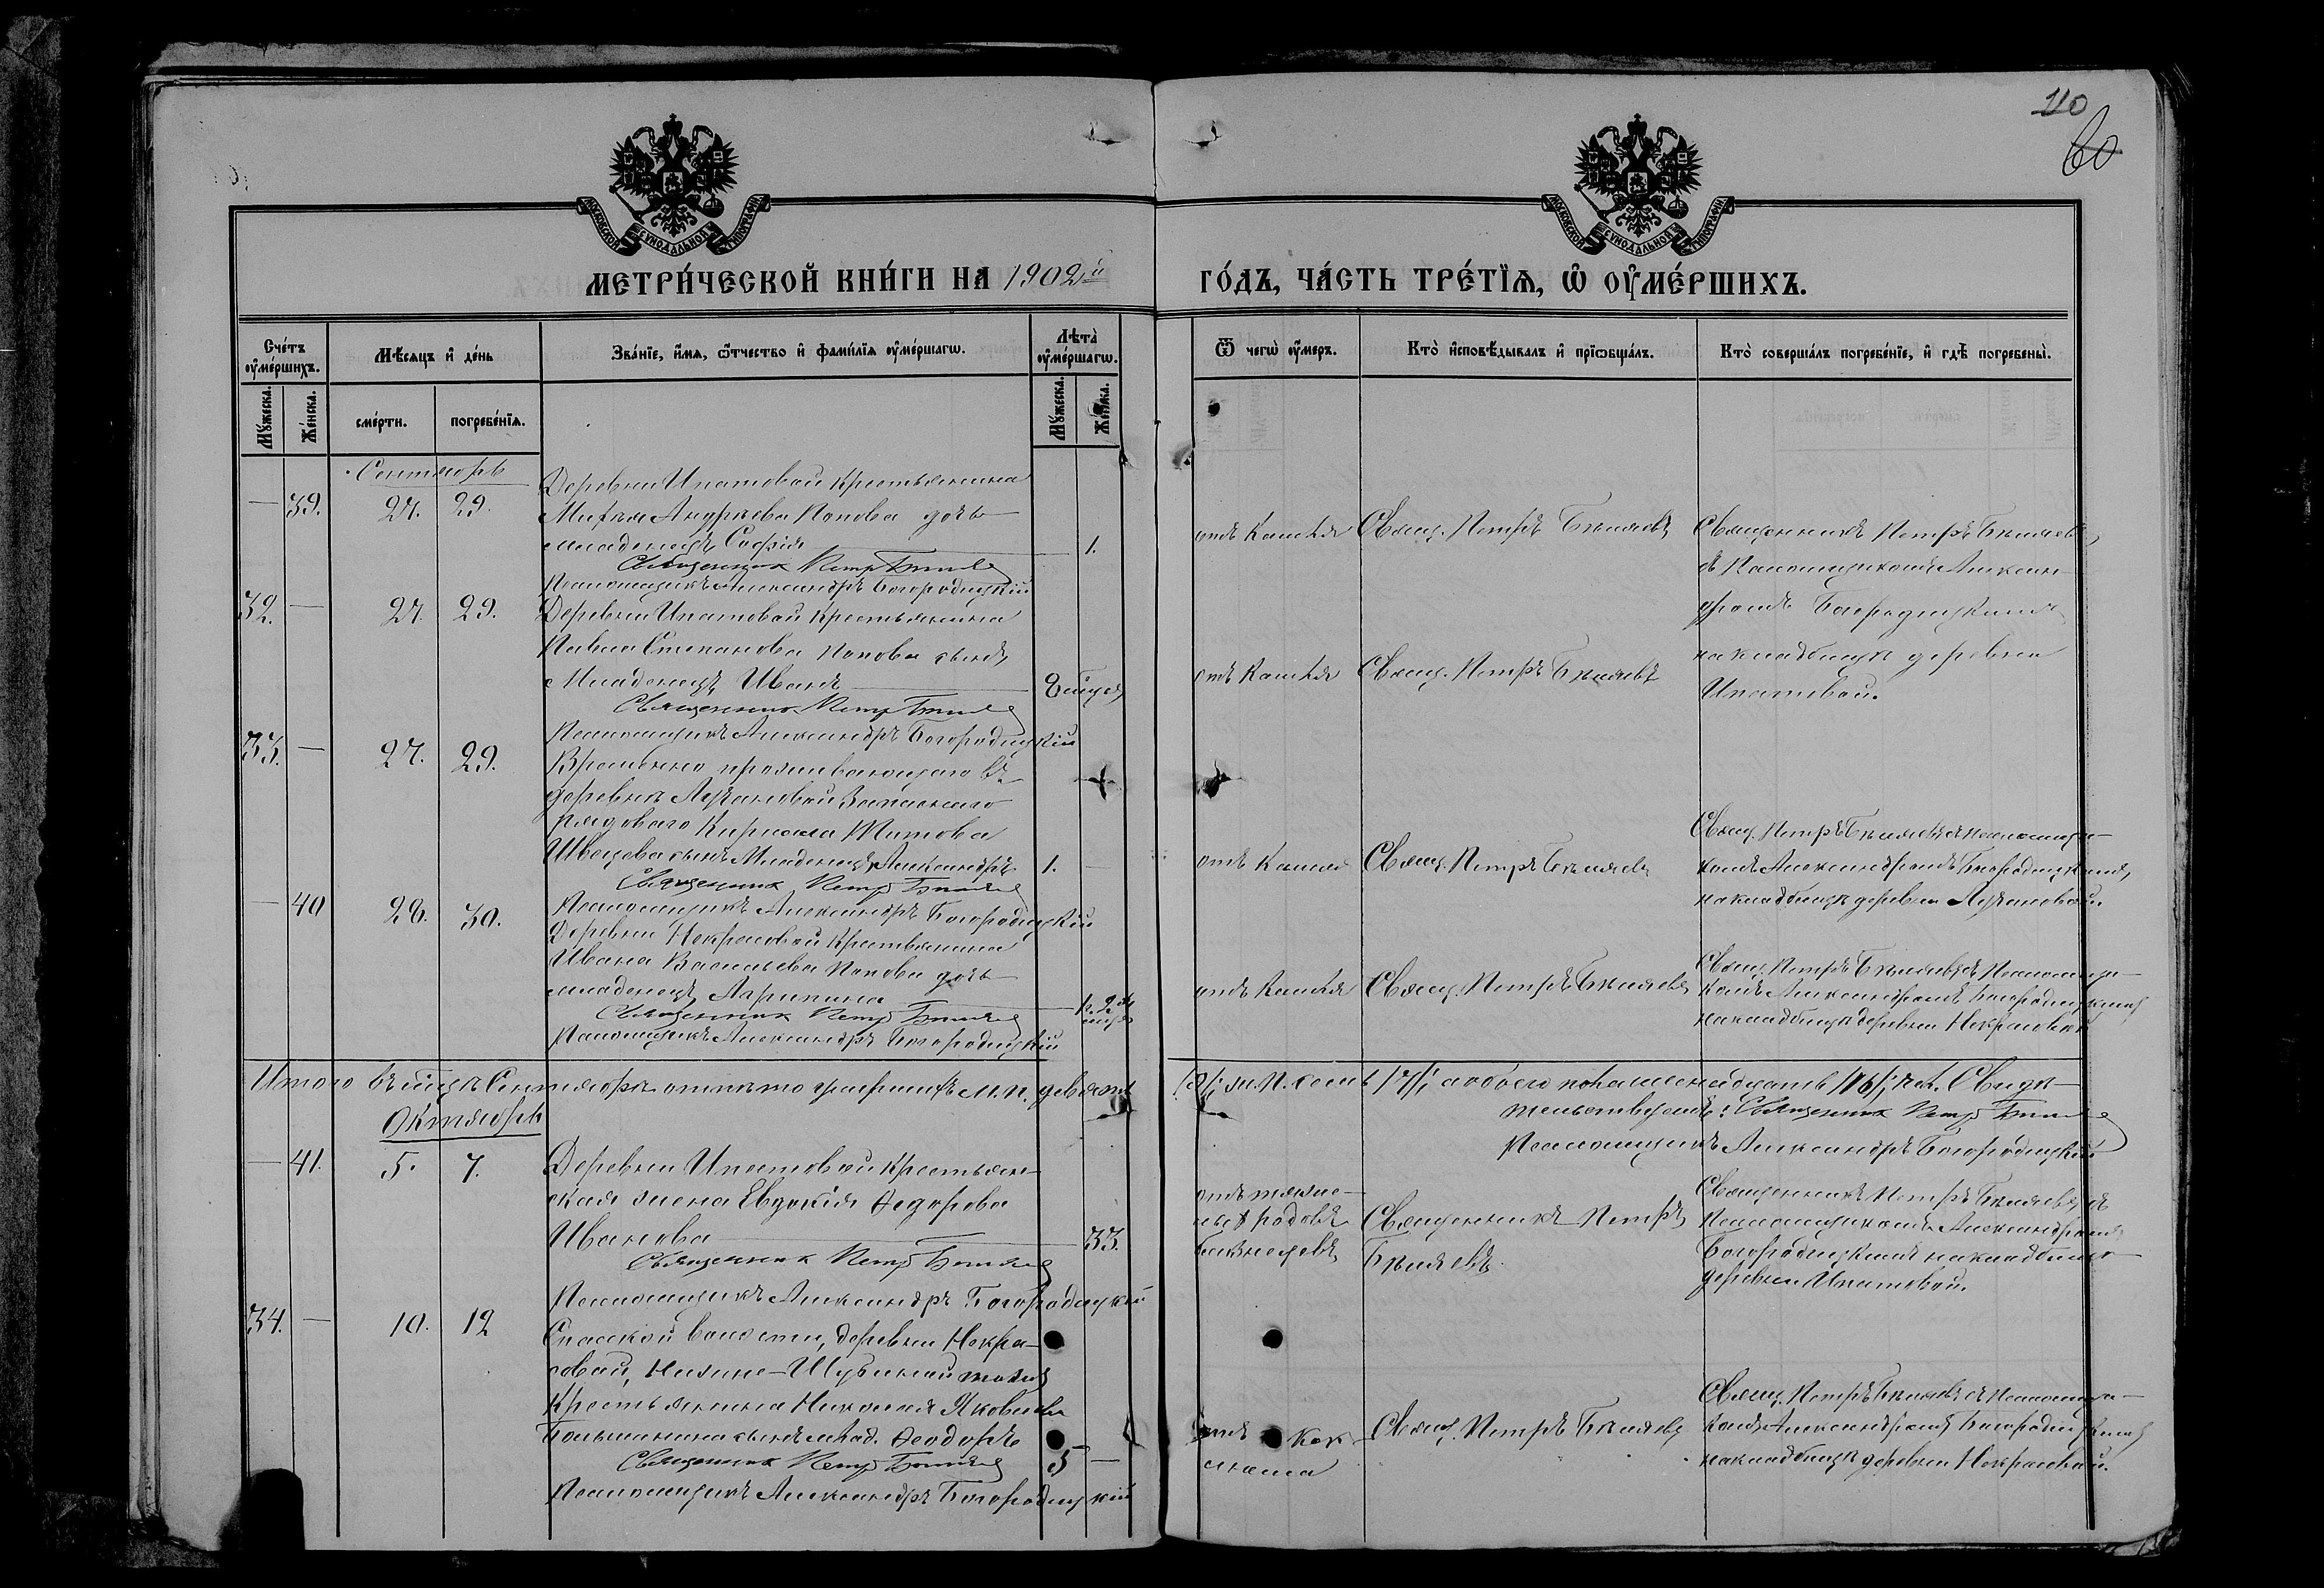 110
60
МОСКОВСКОЙ СѴНОДАЛЬНОЙ ТИПОГРАФІИ
МОСКОВСКОЙ СѴНОДАЛЬНОЙ ТИПОГРАФІИ
МЕТРИ́ЧЕСКОЙ КНИ́ГИ НА 1902й ГО́ДЪ, ЧА́СТЬ ТРЕ́ТЇѦ, Ѡ҆ ОУ҆МЕ́РШИХЪ.
Сче́тъ оу҆ме́ршихъ.
Мѣ́сяцъ и҆ де́нь
Зва́нїе, и҆́мя, ѻ҆́тчество и҆ фами́лїя оу҆ме́ршагѡ.
Лѣта̀ оу҆ме́ршагѡ.
Ѿ чегѡ̀ оу҆́меръ.
Кто̀ и҆сповѣ́дывалъ и҆ прїѡбща́лъ.
Кто̀ соверша́лъ погребе́нїе, и҆ гдѣ̀ погребены̀.
Мꙋ́жеска.
Же́нска.
сме́рти.
погребе́нїя.
Мꙋ́жеска.
Же́нска.
Сентябрь
— 39. 27. 29.
Деревни Ипатовой крестьянина
Михея Андреева Попова дочь
младенецъ Софія 1.
Священник Петр Беляев
Псаломщикъ Александръ Богородицкій
отъ кашля
Свящ. Петръ Бѣляевъ
Священникъ Петръ Бѣляевъ,
съ Псаломщикомъ Алексан-
дромъ Богородицкимъ
на кладбищѣ деревни
Ипатовой.
32. — 27. 29.
Деревни Ипатовой крестьянина
Павла Степанова Попова сынъ,
Младенецъ Иванъ 8 мѣсяц
Священник Петр Беляев
Псаломщикъ Александръ Богородицкій
отъ кашля
Свящ. Петръ Бѣляевъ
33. — 27. 29.
Временно проживающаго въ
деревнѣ Лучановой Запаснаго
рядоваго Кирилла Титова
Швецова сынъ Младенецъ Александръ 1. —
Священник Петр Беляев
Псаломщикъ Александръ Богородицкій
отъ кашля
Свящ. Петръ Бѣляевъ
Свящ. Петръ Бѣляевъ съ псаломщи-
комъ Александромъ Богородицкимъ,
на кладбищѣ деревни Лучановой.
— 40 28. 30.
Деревни Некрасовой крестьянина
Ивана Васильева Попова дочь
младенецъ Агрипина
Священник Петр Беляев
Псаломщикъ Александръ Богородицкій
отъ кашля
Свящ. Петръ Бѣляевъ
Свящ. Петръ Бѣляевъ съ Псаломщи-
комъ Александромъ Богородицкимъ
на кладбищѣ деревни Некрасовой
Итого въ мѣсяцѣ Сентябрѣ умершихъ м. п. девять
Свидѣ-
тельствуемъ: Священник Петр Беляев
Псаломщикъ Александръ Богородицкій
Октябрь
— 41. 5. 7.
Деревни Ипатовой крестьян-
ская жена Евдокія Ѳедорова
Иванова 33.
Священник Петр Беляев
Псаломщикъ Александръ Богородицкій
отъ тяже-
лыхъ родовъ
близнецовъ
Священникъ Петръ
Бѣляевъ.
Священникъ Петръ Бѣляевъ, съ
Псаломщикомъ Александромъ
Богородицкимъ на кладбищѣ
деревни Ипатовой.
34. — 10. 12
Спасской волости, деревни Некра-
совой, Нижне-Шубиной тожъ
Крестьянина Николая Яковлева
сынъ млад. Ѳеодоръ 5 —
Священник Петр Беляев
Псаломщикъ Александръ Богородицкій
отъ
Свящ. Петръ Бѣляевъ
Свящ. Петръ Бѣляевъ съ Псаломщи-
комъ Александромъ Богородицкимъ
на кладбищѣ деревни Некрасовой.